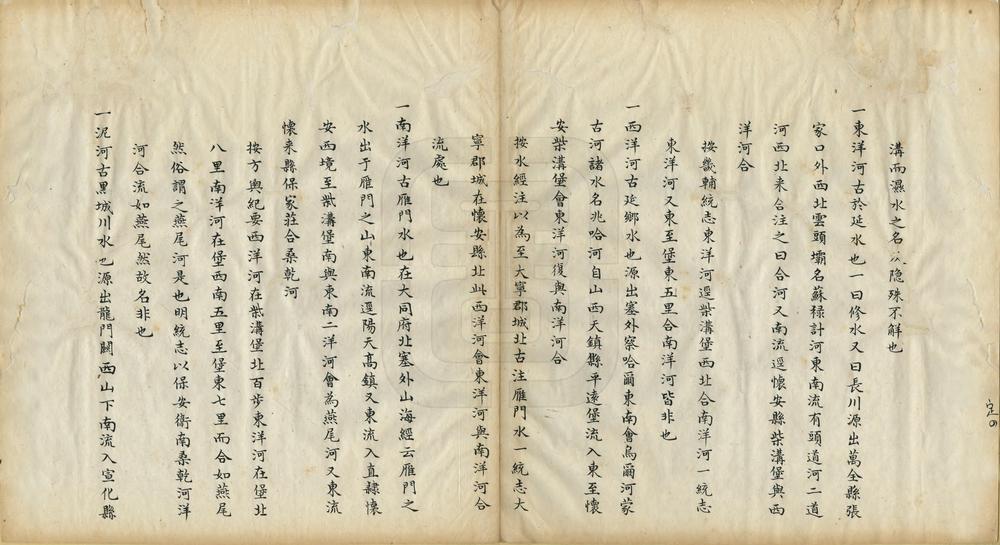 溝而濕水之名以隐殊不解也
一東洋河古於延水也一曰修水又曰長川源出萬全縣張
家口外西北雲頭壩名蘇祿計河東南流有頭道河二道
河西北来合注之曰合河又南流逕懷安縣柴溝堡與西
洋河合
按畿輔統志東洋河逕柴溝堡西北合南洋河一統志
東洋河又東至堡東五里合南洋河皆非也
一西洋河古延鄉水也源出塞外察哈爾東南會烏爾河蒙
古河諸水名兆哈河自山西天鎮縣平遠堡流入東至懷
安柴溝堡會東洋河復與南洋河合
按水經注以為至大寧郡城北古注雁門水一統志大
寧郡城在懷安縣北此西洋河會東洋河與南洋河合
流處也
一南洋河古雁門水也在大同府北塞外山海經云雁門之
水出于雁門之山東南流逕陽天高鎮又東流入直隸懷
安西境至柴溝堡南與東南二洋河會為燕尾河又東流
懷来縣保家莊合桑乾河
按方輿紀要西洋河在柴溝堡北百步東洋河在堡北
八里南洋河在堡西南五里至堡東七里而合如燕尾
然俗謂之燕尾河是也明統志以保安衛南桑乾河洋
河合流如燕尾然故名非也
一泥河古黑城川水也源出龍門關西山下南流入宣化縣